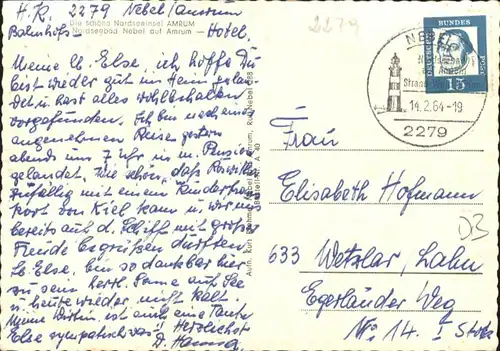 H. K. 2279 Nebel/Amrum
Bahnhofs- Hotel.
Die schöne Nordseeinsel AMRUM
Nordseebad Nebel auf Amrum
2279
Meine lb. Else, ich hoffe Du
bist wieder gut ins Heim gelan-
det u. hast alles wohlbehalten
vorgefunden. Ich bin nach ein
angenehmen Reise gestern
abends um 7 Uhr in m. Pension
gelandet. Wie schön, daß Roswitha
zufällig mit einem Kindertrans-
port von Kiel kam u. wir uns
bereits auf d. Schiffe mit großer
Freude begrüßen durften.
Lb. Else, bin so dankbar hier
zu sein. herrl. Sonne auf See
u. heute wieder, nicht kalt.
Meine Wirtin ist auch eine Tante
Else sympathisch was! Herzlichst
D.
NEBEL
14.2.64-19
2279
DEUTSCHE BUNDESPOST
15
Frau
Elisabeth Hofmann
633 Wetzlar, Lahn
Egerländer Weg
Nr. 14. I Stock
D3